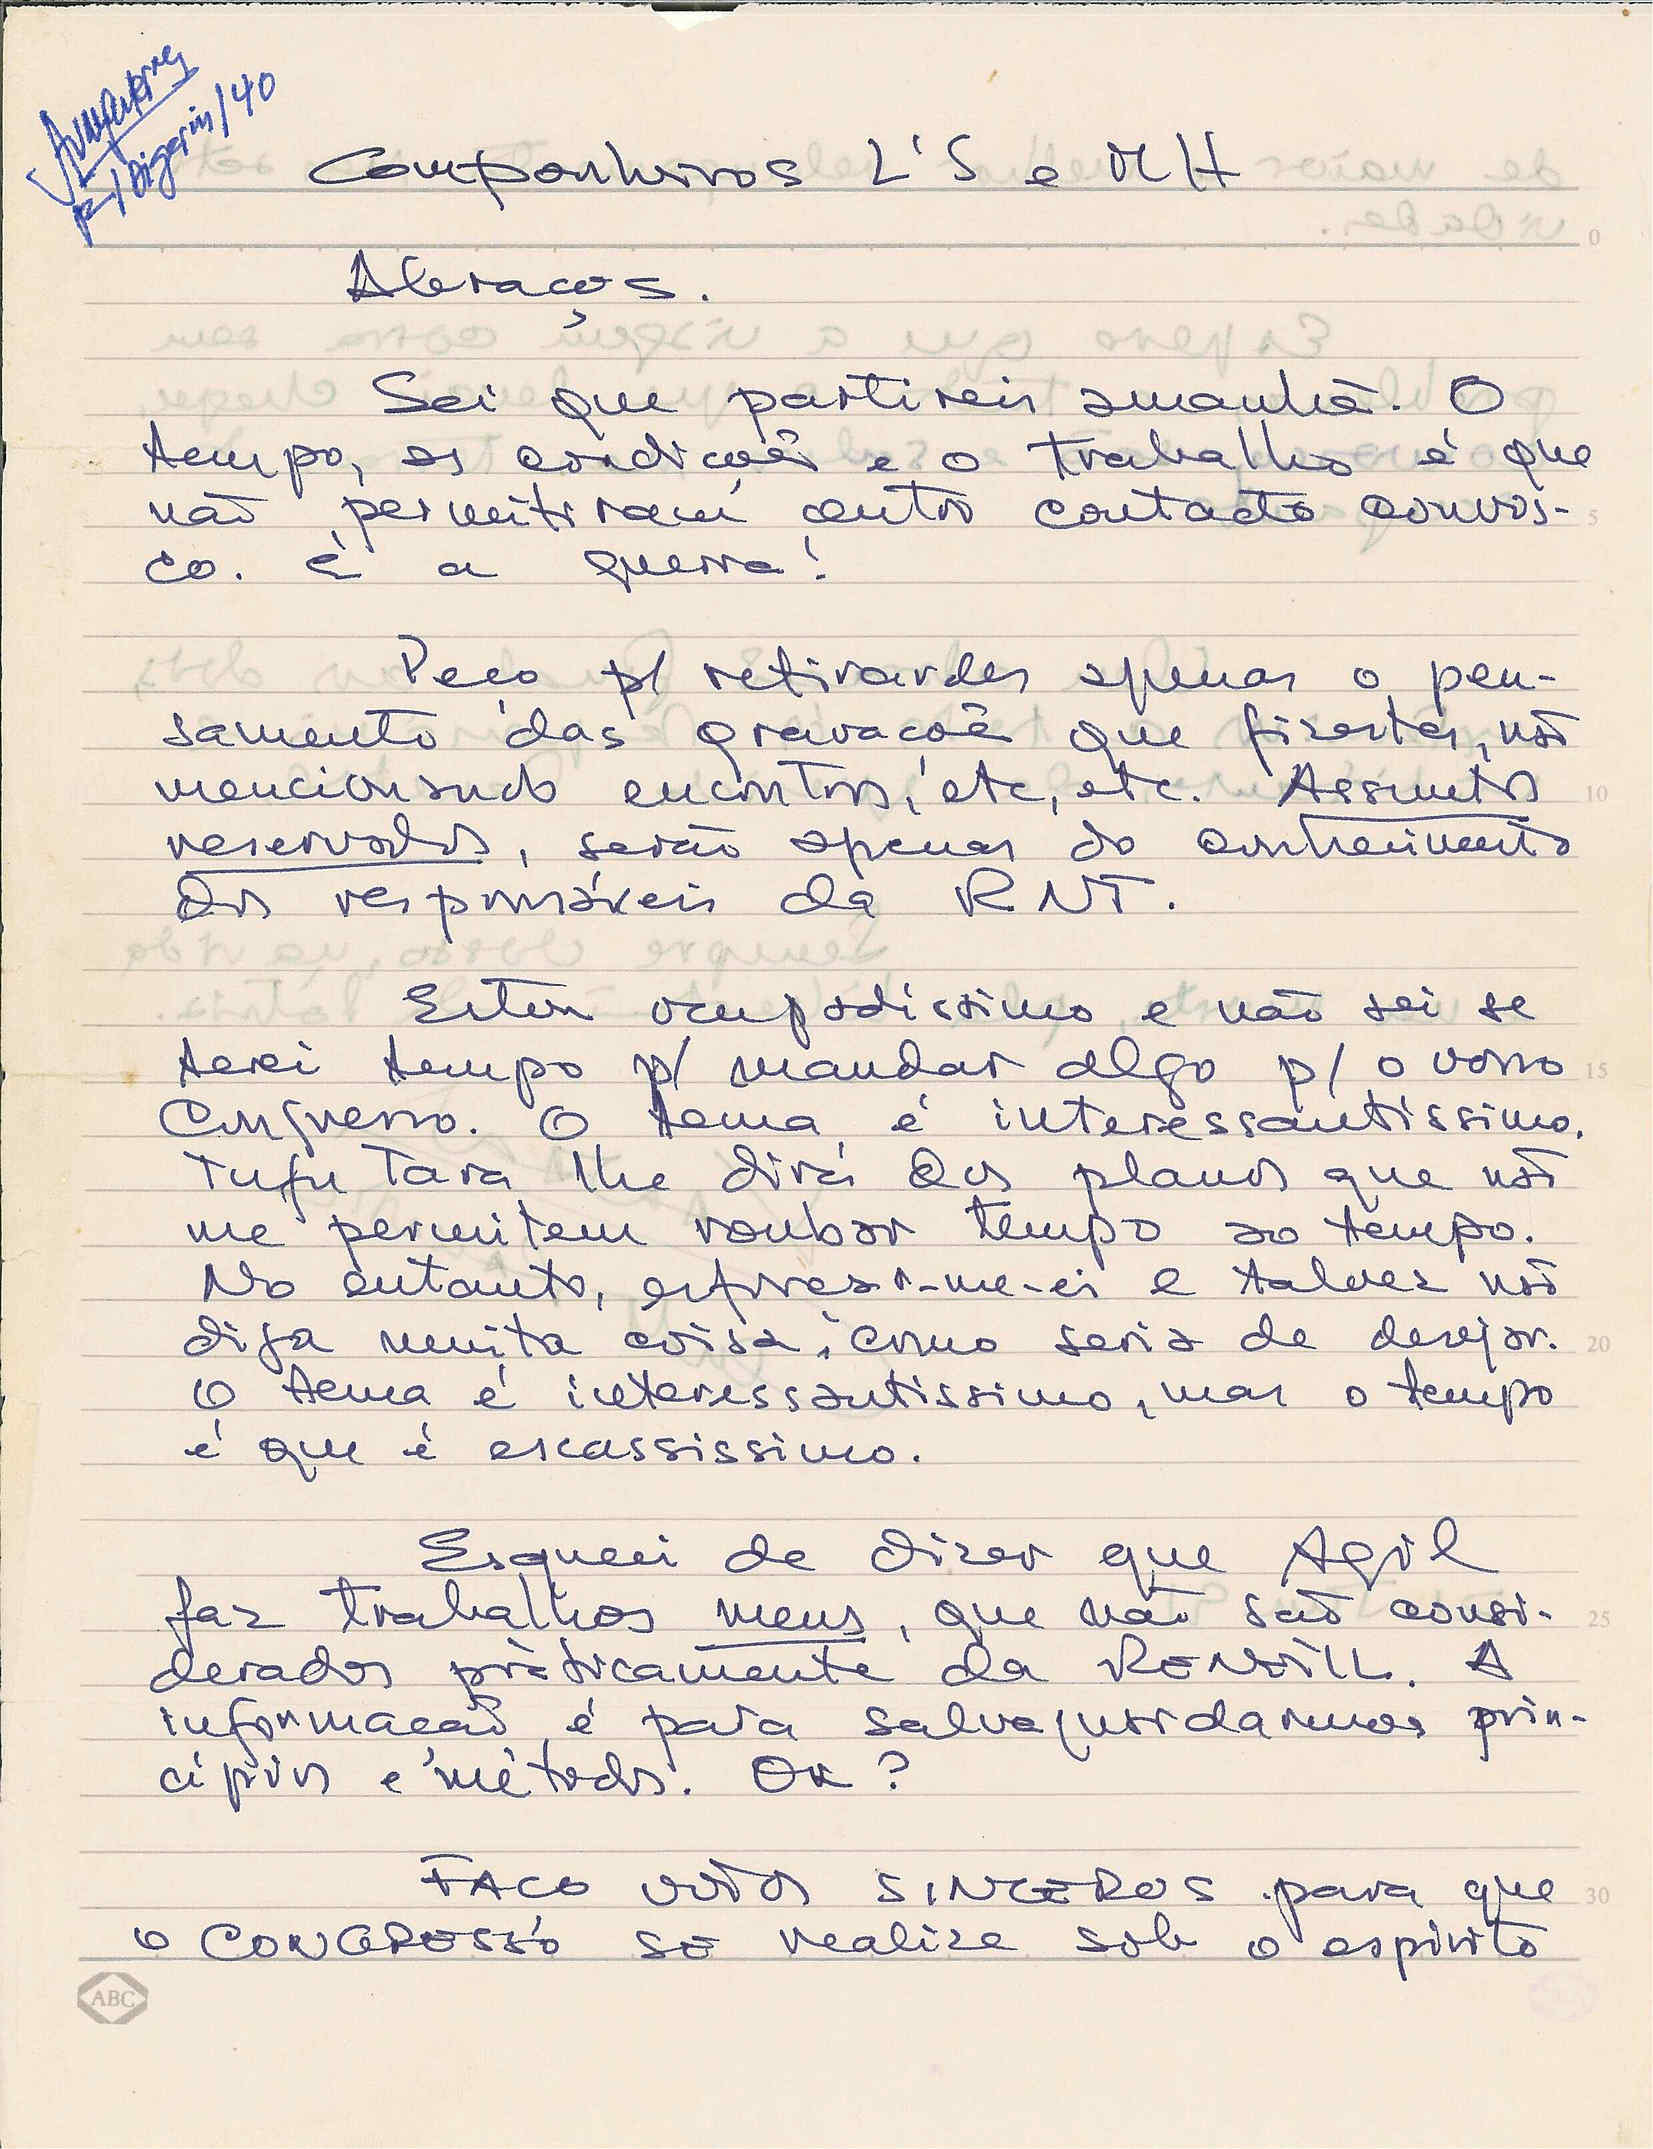 p/ Digerir/40
Companheiros L'S e MH
Abraços.
Sei que partireis amanhã. O
tempo, as condições e o trabalho é que
não permitiram outro contacto convos-
co. É a guerra!
Peço p/ retirardes apenas o pen-
samento das gravações que fizestes, não
mencionando encontros, etc, etc. Assuntos
reservados, serão apenas do conhecimento
dos responsáveis da RNT.
Estou ocupadíssimo e não sei se
terei tempo p/ mandar algo p/ o vosso
Congresso. O tema é interessantissimo.
Tufu Tara lhe dirá dos planos que não
me permitem roubar tempo ao tempo.
No entanto, esforçar-me-ei e talvez não
diga muita coisa, como seria de desejar.
O tema é interessantissimo, mas o tempo
é que é escassissimo.
Esqueci de dizer que Agil
faz trabalhos meus, que não são consi-
derados pràticamente da RENETIL. A
informação é para salvaguardarmos prin-
cípios e métodos. OK?
FAÇO votos SINCEROS para que
o CONGRESSO SE realize sob o espírito
ABC
0
5
10
15
20
25
30